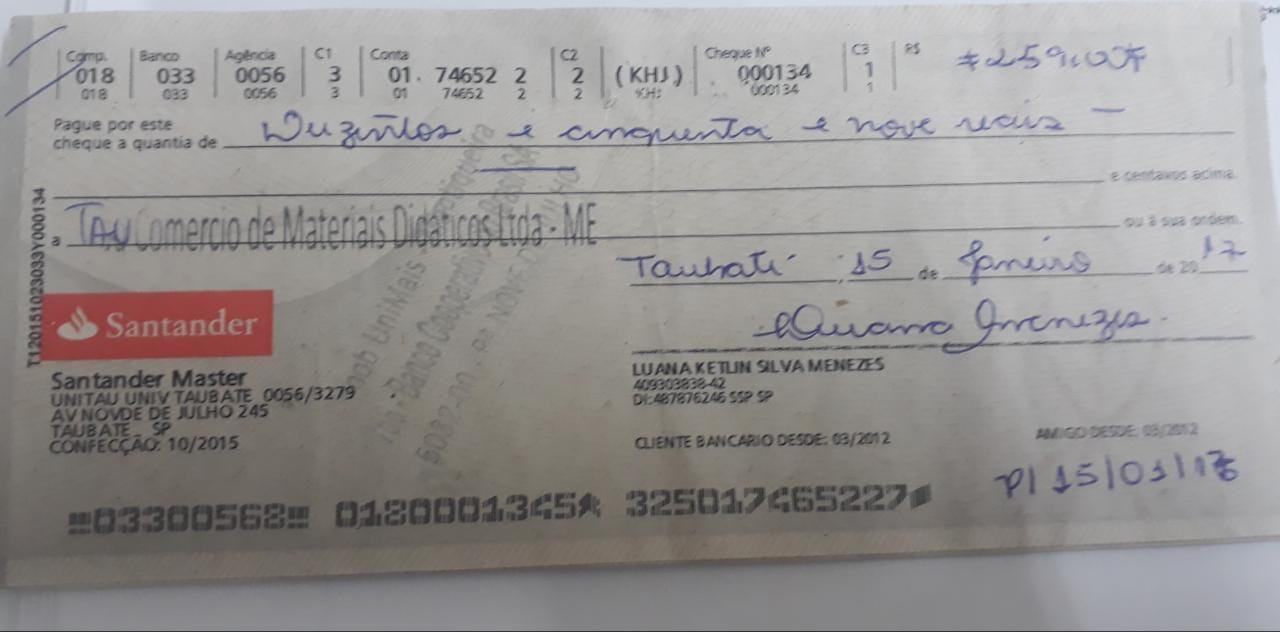 Comp. Banco Agência C1 Conta C2 Cheque Nº C3 R$
018 033 0056 3 01. 74652 2 2 (KHJ) 000134 1 #259,00#
018 033 0056 3 01 74652 2 2 KHJ 000134 1
Pague por este
cheque a quantia de Duzentos e cinquenta e nove reais —
e centavos acima.
a TAU Comercio de Materiais Didáticos Ltda - ME ou à sua ordem.
Taubaté 15 de Janeiro de 2017
T120151023033Y000134
Santander
Luana Menezes
Santander Master
UNITAU UNIV TAUBATE 0056/3279
AV NOVDE DE JULHO 245
TAUBATE _ SP
CONFECÇÃO: 10/2015
LUANA KETLIN SILVA MENEZES
409303838-42
DI:487876246 SSP SP
CLIENTE BANCARIO DESDE: 03/2012
AMIGO DESDE: 03/2012
P/ 15/01/17
03300568 0180001345 325017465227